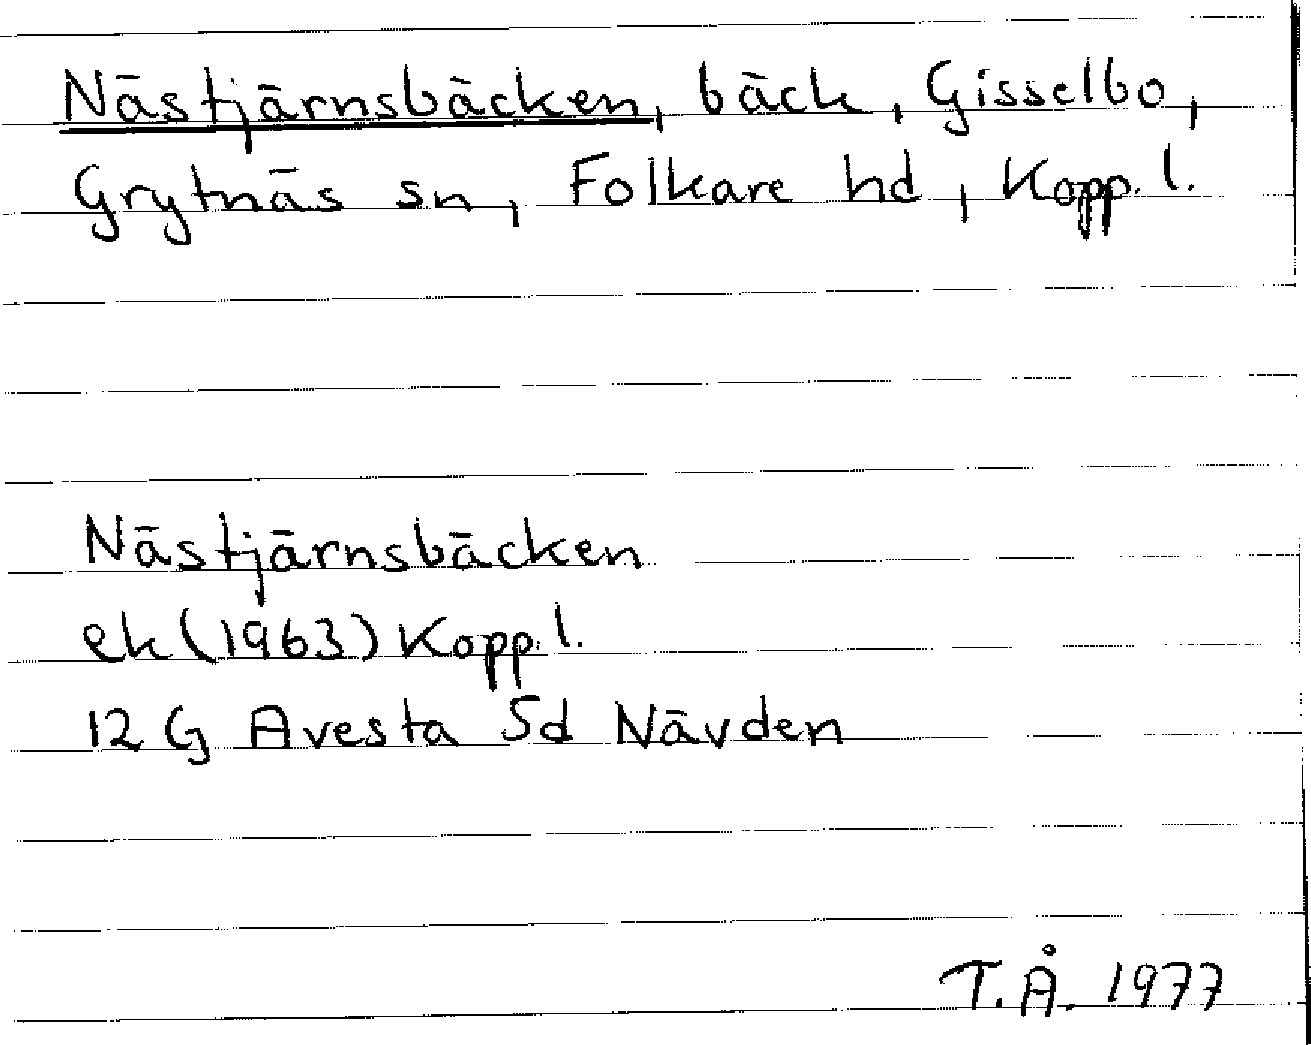 Nästjärnsbäcken, bäck, Gisselbo,
Grytnäs sn, Folkare hd, Kopp. l.
Nästjärnsbäcken
ek (1963) Kopp. l.
12 G Avesta 5d Nävden
T.Å. 1977